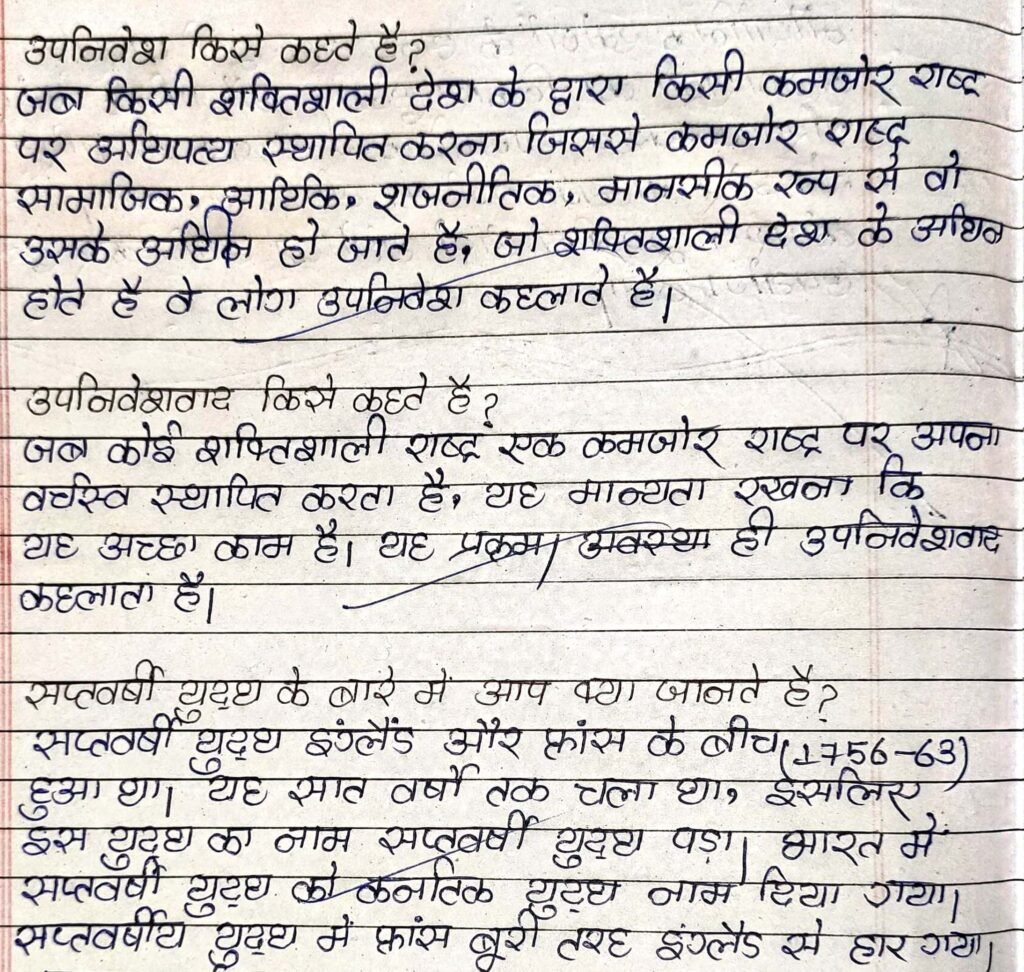 उपनिवेश किसे कहते है?
जब किसी शक्तिशाली देश के द्वारा किसी कमजोर राष्ट्र
पर अधिपत्य स्थापित करना जिससे कमजोर राष्ट्र
सामाजिक, आर्थिक, राजनीतिक, मानसीक रूप से वो
उसके अधिन हो जाते है, जो शक्तिशाली देश के अधिन
होते है वे लोग उपनिवेश कहलाते है।
उपनिवेशवाद किसे कहते है?
जब कोई शक्तिशाली राष्ट्र एक कमजोर राष्ट्र पर अपना
वर्चस्व स्थापित करता है, यह मान्यता रखना कि
यह अच्छा काम है। यह प्रक्रम/अवस्था ही उपनिवेशवाद
कहलाता है।
सप्तवर्षी युद्ध के बारे में आप क्या जानते है?
सप्तवर्षी युद्ध इंग्लैंड और फ्रांस के बीच (1756-63)
हुआ था। यह सात वर्षों तक चला था, इसलिए
इस युद्ध का नाम सप्तवर्षी युद्ध पड़ा। भारत में
सप्तवर्षी युद्ध को कर्नाटक युद्ध नाम दिया गया।
सप्तवर्षीय युद्ध में फ्रांस बूरी तरह इंग्लैंड से हार गया।